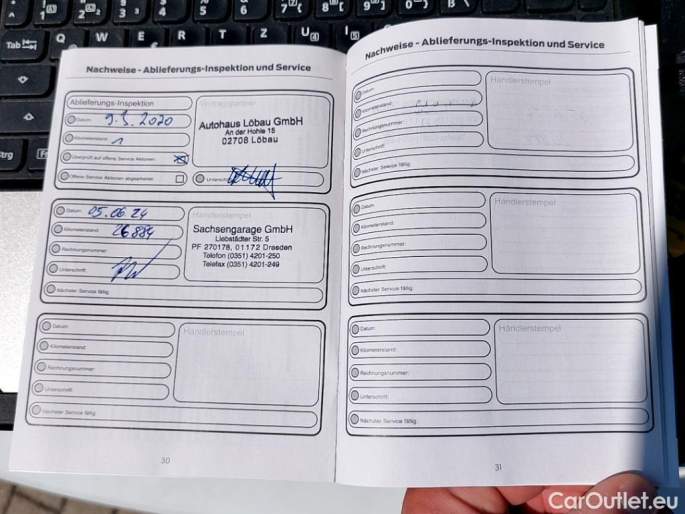 Nachweise - Ablieferungs-Inspektion und Service
Ablieferungs-Inspektion
Datum 9.3.2020
Kilometerstand 1
Überprüft auf offene Service Aktionen
Offene Service Aktionen abgearbeitet
Autohaus Löbau GmbH
An der Hohle 15
02708 Löbau
Unterschrift
Datum 05.06.24
Kilometerstand 26884
Rechnungsnummer
Unterschrift
Nächster Service fällig
Händlerstempel
Sachsengarage GmbH
Liebstädter Str. 5
PF 270178, 01172 Dresden
Telefon (0351) 4201-250
Telefax (0351) 4201-249
Datum
Kilometerstand
Rechnungsnummer
Unterschrift
Nächster Service fällig
Händlerstempel
30
Nachweise - Ablieferungs-Inspektion und Service
Datum
Kilometerstand
Rechnungsnummer
Unterschrift
Nächster Service fällig
Händlerstempel
Datum
Kilometerstand
Rechnungsnummer
Unterschrift
Nächster Service fällig
Händlerstempel
Datum
Kilometerstand
Rechnungsnummer
Unterschrift
Nächster Service fällig
Händlerstempel
31
Tab
Strg
CarOutlet.eu